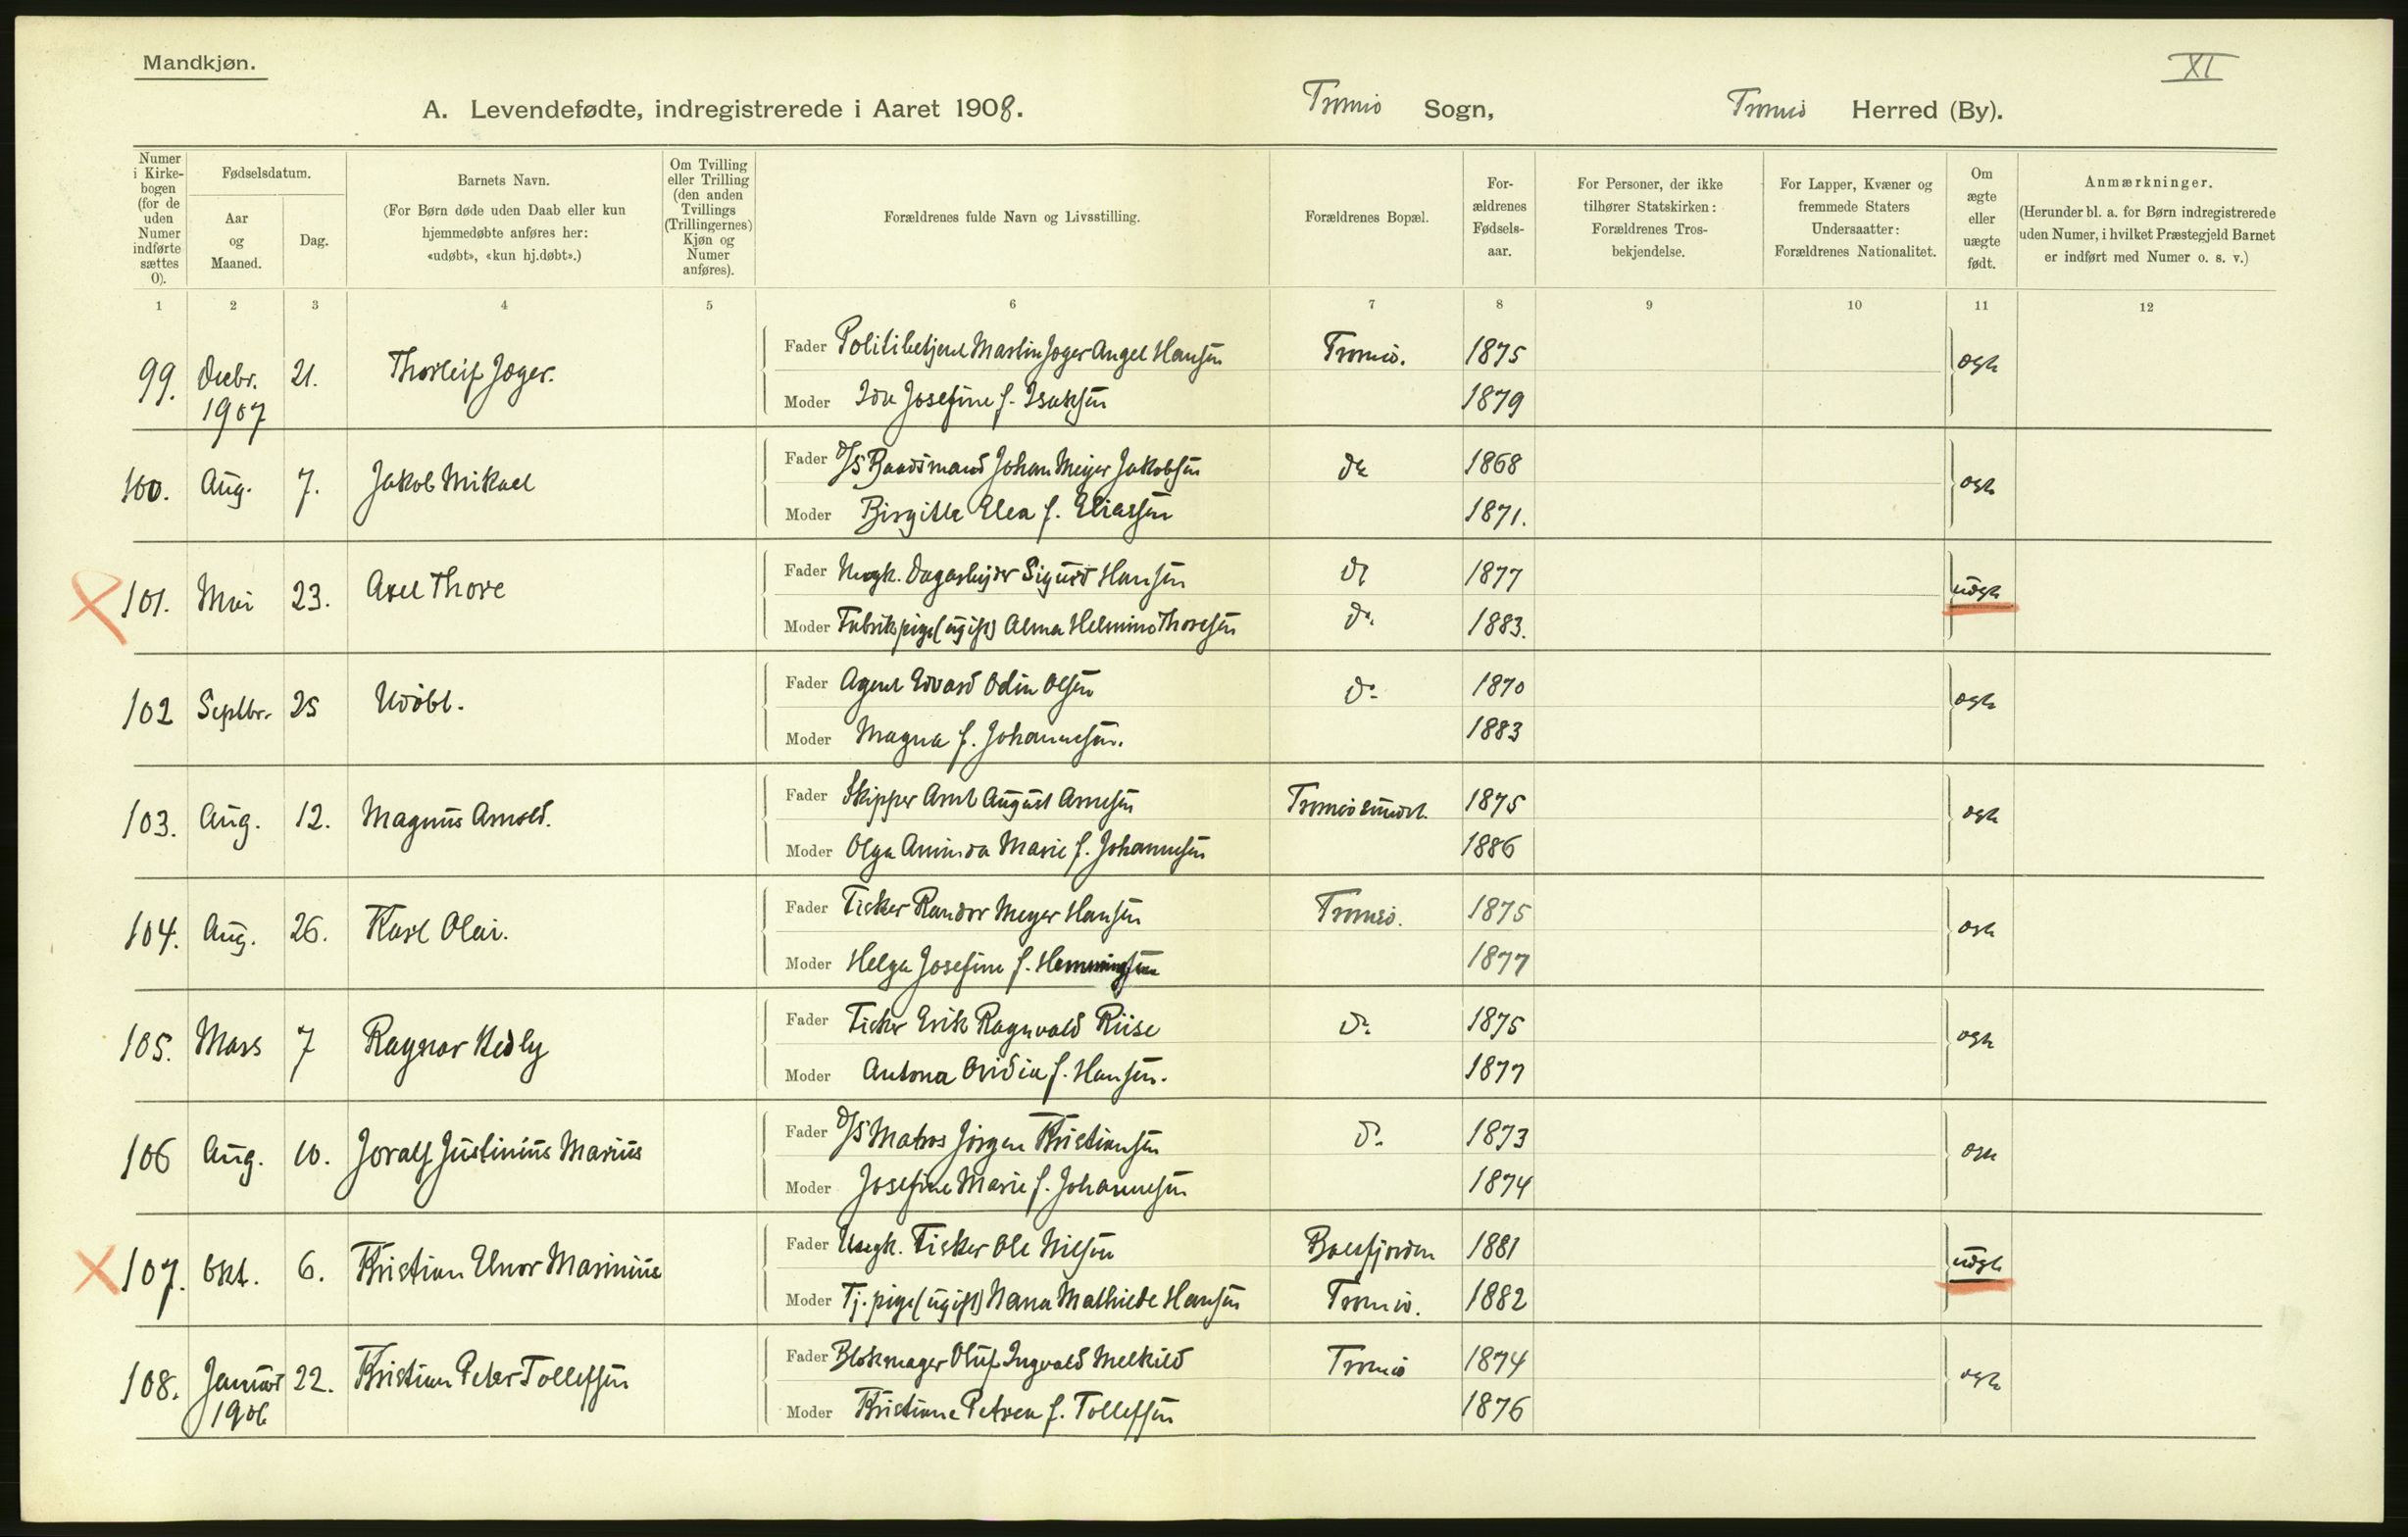 Mandkjøn.
XI
A. Levendefødte, indregistrerede i Aaret 1908. Tromsø Sogn, Tromsø Herred (By).
Numer i Kirkebogen (for de uden Numer indførte sættes 0).
Fødselsdatum.
Aar og Maaned.
Dag.
Barnets Navn.
(For Børn døde uden Daab eller kun
hjemmedøbte anføres her:
«udøbt», «kun hj.døbt».)
Om Tvilling
eller Trilling
(den anden
Tvillings
(Trillingernes)
Kjøn og
Numer
anføres).
Forældrenes fulde Navn og Livsstilling.
Forældrenes Bopæl.
For-
ældrenes
Fødsels-
aar.
For Personer, der ikke
tilhører Statskirken:
Forældrenes Tros-
bekjendelse.
For Lapper, Kvæner og
fremmede Staters
Undersaatter:
Forældrenes Nationalitet.
Om
ægte
eller
uægte
født.
Anmærkninger.
(Herunder bl. a. for Børn indregistrerede
uden Numer, i hvilket Præstegjeld Barnet
er indført med Numer o. s. v.)
1 2 3 4 5 6 7 8 9 10 11 12
99. Decbr. 1907 21. Thorleif Jøger. Fader Politibetjent Martin Jøger Angel Hansen Tromsø. 1875 ægte
Moder Ida Josefine f. Isaksen 1879
100. Aug. 7. Jakob Mikael Fader D/S Baadsmand Johan Meyer Jakobsen do 1868 ægte
Moder Birgitte Elea f. Eliassen 1871.
101. Mai 23. Axel Thore Fader Uægt. Dagarbejder Sigurd Hansen do 1877 uægte
Moder Fabrikspige (ugift) Alma Helmine Thoresen do. 1883.
102 Septbr. 25 Udøbt. Fader Agent Edvard Odin Olsen do 1870 ægte
Moder Magna f. Johannesen. 1883
103. Aug. 12. Magnus Arnold. Fader Skipper Arnt August Arnesen Tromsøsundet. 1875 ægte
Moder Olga Aminda Marie f. Johannesen 1886
104. Aug. 26. Karl Olai. Fader Fisker Randor Meyer Hansen Tromsø. 1875 ægte
Moder Helga Josefine f. Hemmingsen 1877
105. Mars 7 Ragnar Hedly Fader Fisker Erik Ragnvald Riise do 1875 ægte
Moder Antona Ovidia f. Hansen. 1877
106 Aug. 10. Joralf Justinius Marius Fader D/S Matros Jørgen Kristiansen do. 1873 ægte
Moder Josefine Marie f. Johannesen 1874
107. Okt. 6. Kristian Elnor Marinius Fader Uægt. Fisker Ole Nilsen Balsfjorden 1881 uægte
Moder Tj.pige (ugift) Nana Mathilde Hansen Tromsø. 1882
108. Januar 1906 22. Kristian Peter Tollefsen Fader Blokmager Oluf Ingvald Melkild Tromsø 1874 ægte
Moder Kristiane Petrea f. Tollefsen 1876